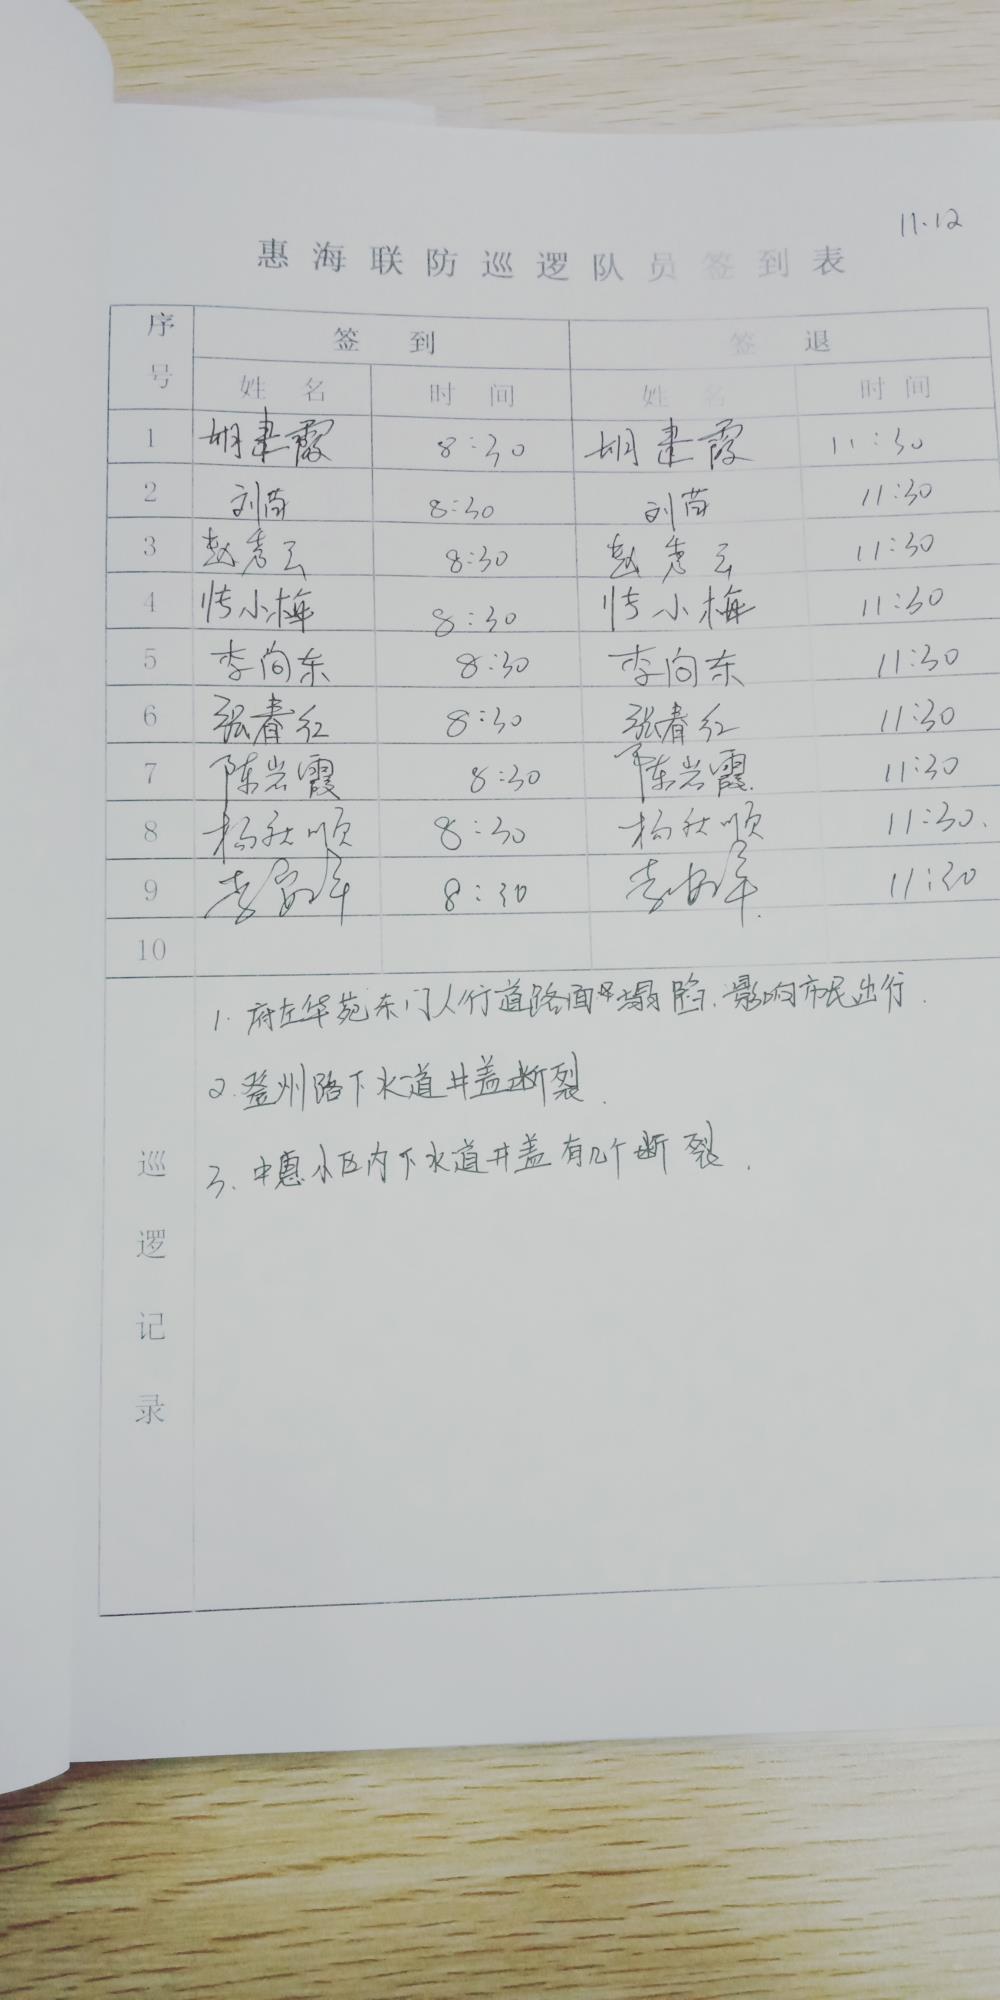 11.12
惠海联防巡逻队员签到表
序号 签到 签退
姓名 时间 姓名 时间
1 胡建霞 8:30 胡建霞 11:30
2 刘苗 8:30 刘苗 11:30
3 赵秀云 8:30 赵秀云 11:30
4 小梅 8:30 小梅 11:30
5 李向东 8:30 李向东 11:30
6 张春红 8:30 张春红 11:30
7 陈岩霞 8:30 陈岩霞 11:30
8 杨秋顺 8:30 杨秋顺 11:30.
9 李 8:30 李 11:30
10
巡逻记录
1. 府左华苑东门人行道路面塌陷.影响市民出行.
2. 登州路下水道井盖断裂.
3. 中惠小区内下水道井盖有几个断裂.